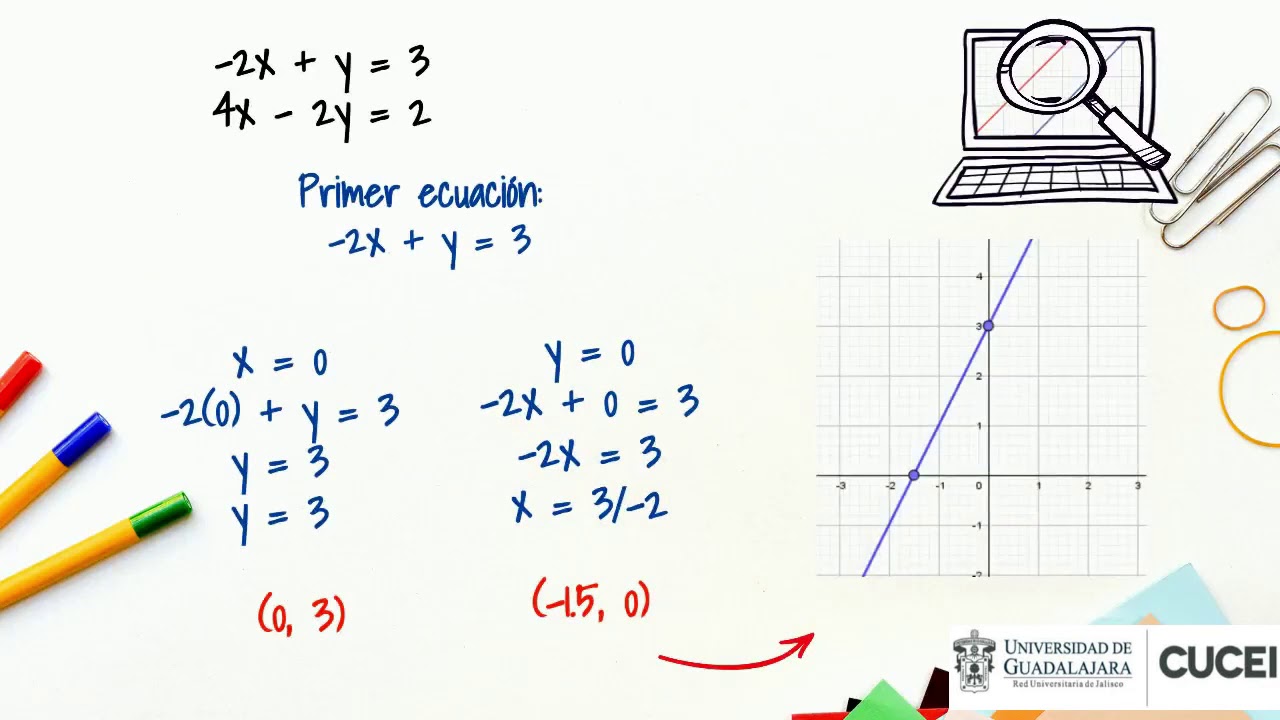 -2x + y = 3
4x - 2y = 2
Primer ecuación:
-2x + y = 3
x = 0
-2(0) + y = 3
y = 3
y = 3
(0, 3)
y = 0
-2x + 0 = 3
-2x = 3
x = 3/-2
(-1.5, 0)
4
3
2
1
-3 -2 -1 0 1 2 3
-1
-2
UNIVERSIDAD DE
GUADALAJARA
Red Universitaria de Jalisco
CUCEI